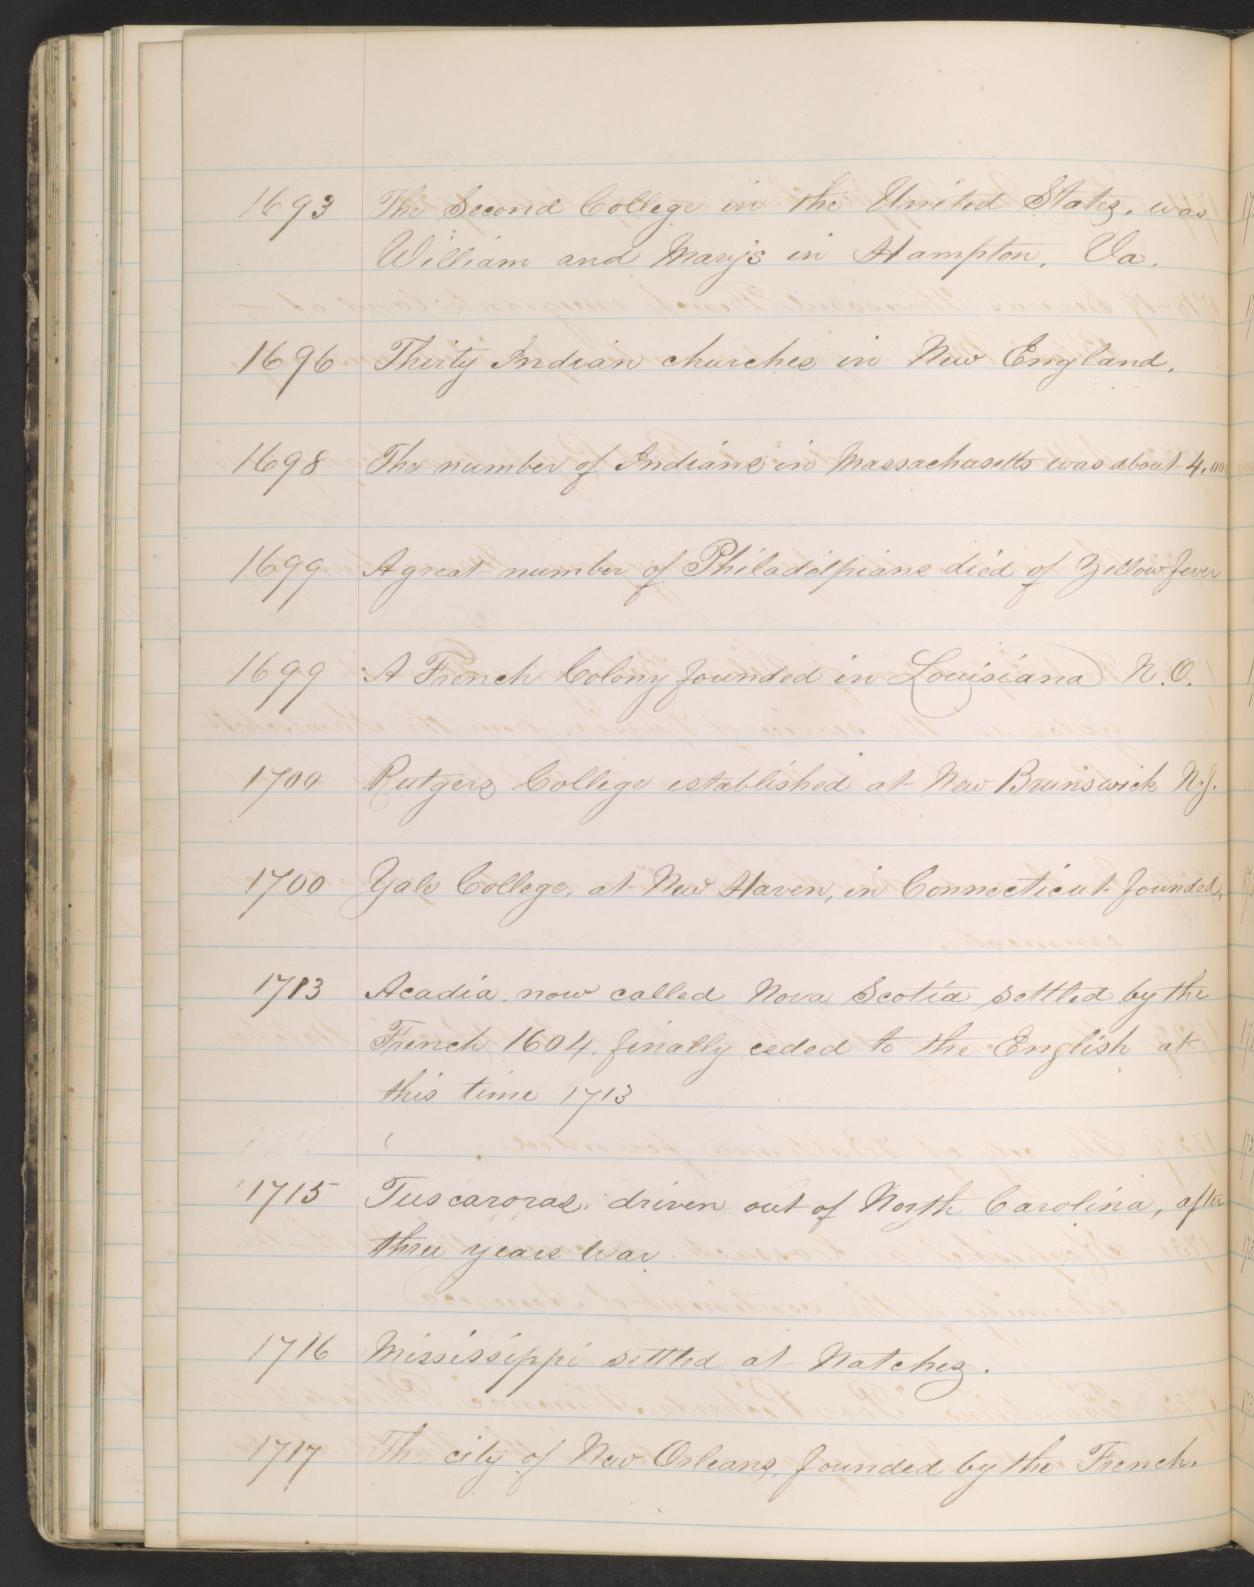 1693 The Second College in the United States, was
William and Mary's in Hampton, Va.
1696 Thirty Indian churches in New England.
1698 The number of Indians in Massachusetts was about 4,00
1699 A great number of Philadelpians died of Yellow fever
1699 A French Colony founded in Louisiana N.O.
1700 Rutgers College established at New Brunswick N.J.
1700 Yale College, at New Haven, in Connecticut founded,
1713 Acadia now called Nova Scotia settled by the
French 1604. finally ceded to the English at
this time 1713
1715 Tuscaroras. driven out of North Carolina, after
three years War
1716 Mississippi settled at Natchez.
1717 The city of New Orleans, founded by the French.